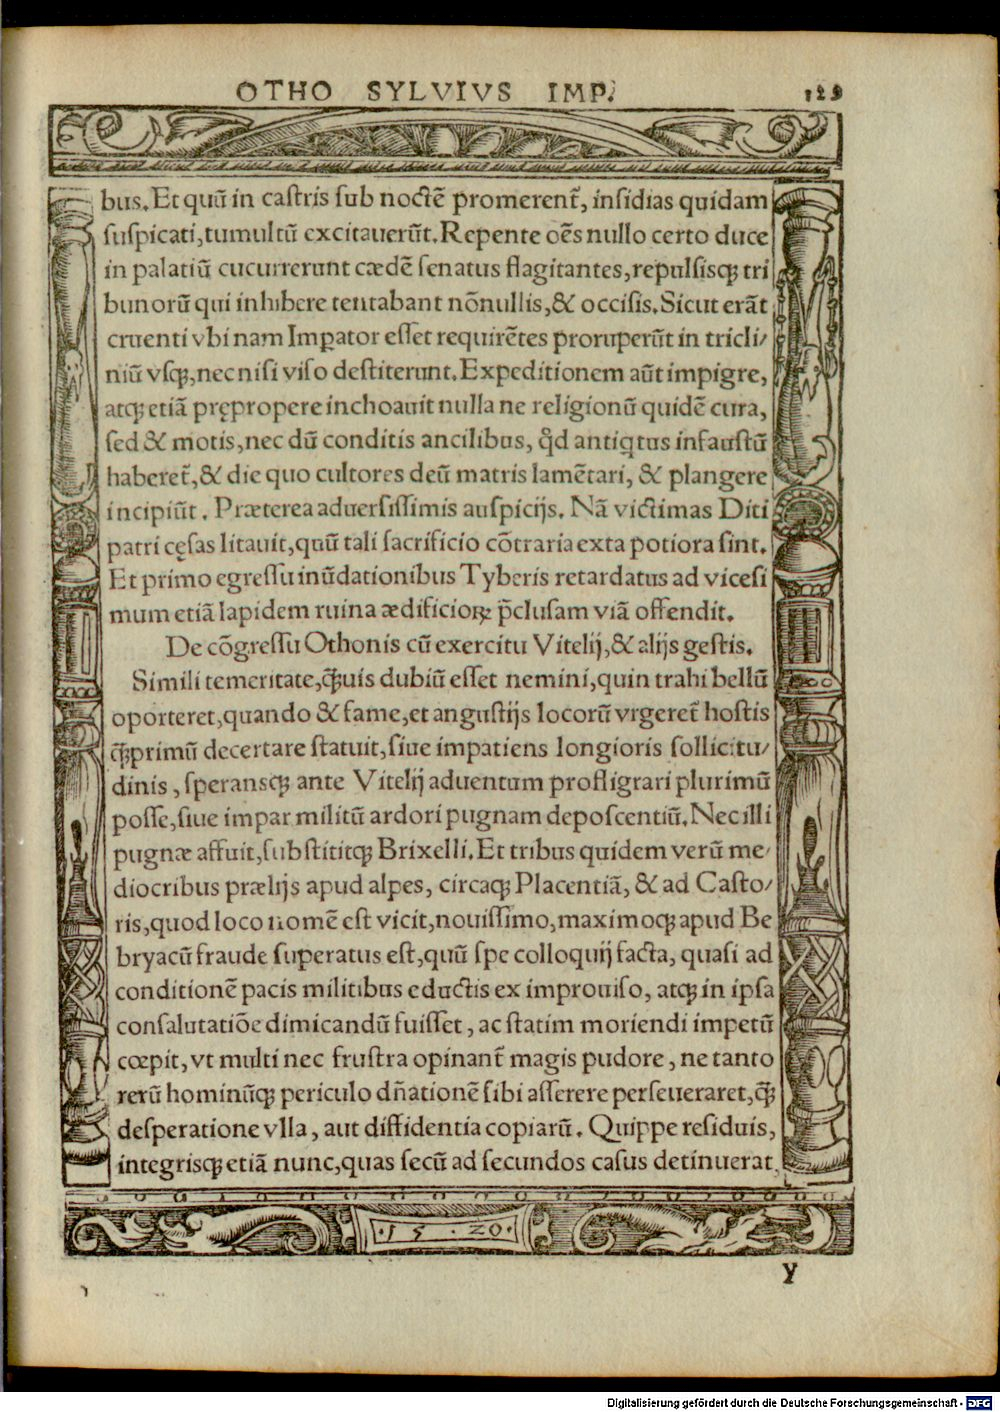 OTHO SYLVIVS IMP. 129
bus. Et quū in castris sub noctē promerent̄, insidias quidam
suspicati, tumultū excitauerūt. Repente oēs nullo certo duce
in palatiū cucurrerunt cædē senatus flagitantes, repulsisqꝫ tri
bunorū qui inhibere tentabant nōnullis, & occisis. Sicut erāt
cruenti vbi nam Imꝑator esset requirētes proruperūt in tricli/
niū vsqꝫ, nec nisi viso destiterunt. Expeditionem aūt impigre,
atqꝫ etiā prępropere inchoauit nulla ne religionū quidē cura,
sed & motis, nec dū conditis ancilibus, qđ antiqͥtus infaustū
haberet̄, & die quo cultores deū matris lamētari, & plangere
incipiūt. Præterea aduersissimis auspicijs. Nā victimas Diti
patri cęsas litauit, quū tali sacrificio cōtraria exta potiora sint.
Et primo egressu inūdationibus Tyberis retardatus ad vicesi
mum etiā lapidem ruina ædificioꝝ p̄clusam viā offendit.
De cōgressu Othonis cū exercitu Vitelij, & alijs gestis.
Simili temeritate, q̄ꝫuis dubiū esset nemini, quin trahi bellū
oporteret, quando & fame, et angustijs locorū vrgeret̄ hostis
q̄ꝫprimū decertare statuit, siue impatiens longioris sollicitu/
dinis, speransqꝫ ante Vitelij aduentum profligrari plurimū
posse, siue impar militū ardori pugnam deposcentiū. Nec illi
pugnæ affuit, substititqꝫ Brixelli. Et tribus quidem verū me/
diocribus prælijs apud alpes, circaqꝫ Placentiā, & ad Casto/
ris, quod loco nomē est vicit, nouissimo, maximoqꝫ apud Be
bryacū fraude superatus est, quū spe colloquij facta, quasi ad
conditionē pacis militibus eductis ex improuiso, atqꝫ in ipsa
consalutatiōe dimicandū fuisset, ac statim moriendi impetū
cœpit, vt multi nec frustra opinant̄ magis pudore, ne tanto
rerū hominūqꝫ periculo dn̄ationē sibi asserere perseueraret, q̄ꝫ
desperatione vlla, aut diffidentia copiarū. Quippe residuis,
integrisqꝫ etiā nunc, quas secū ad secundos casus detinuerat
· 15 · 20 ·
y
Digitalisierung gefördert durch die Deutsche Forschungsgemeinschaft - DFG